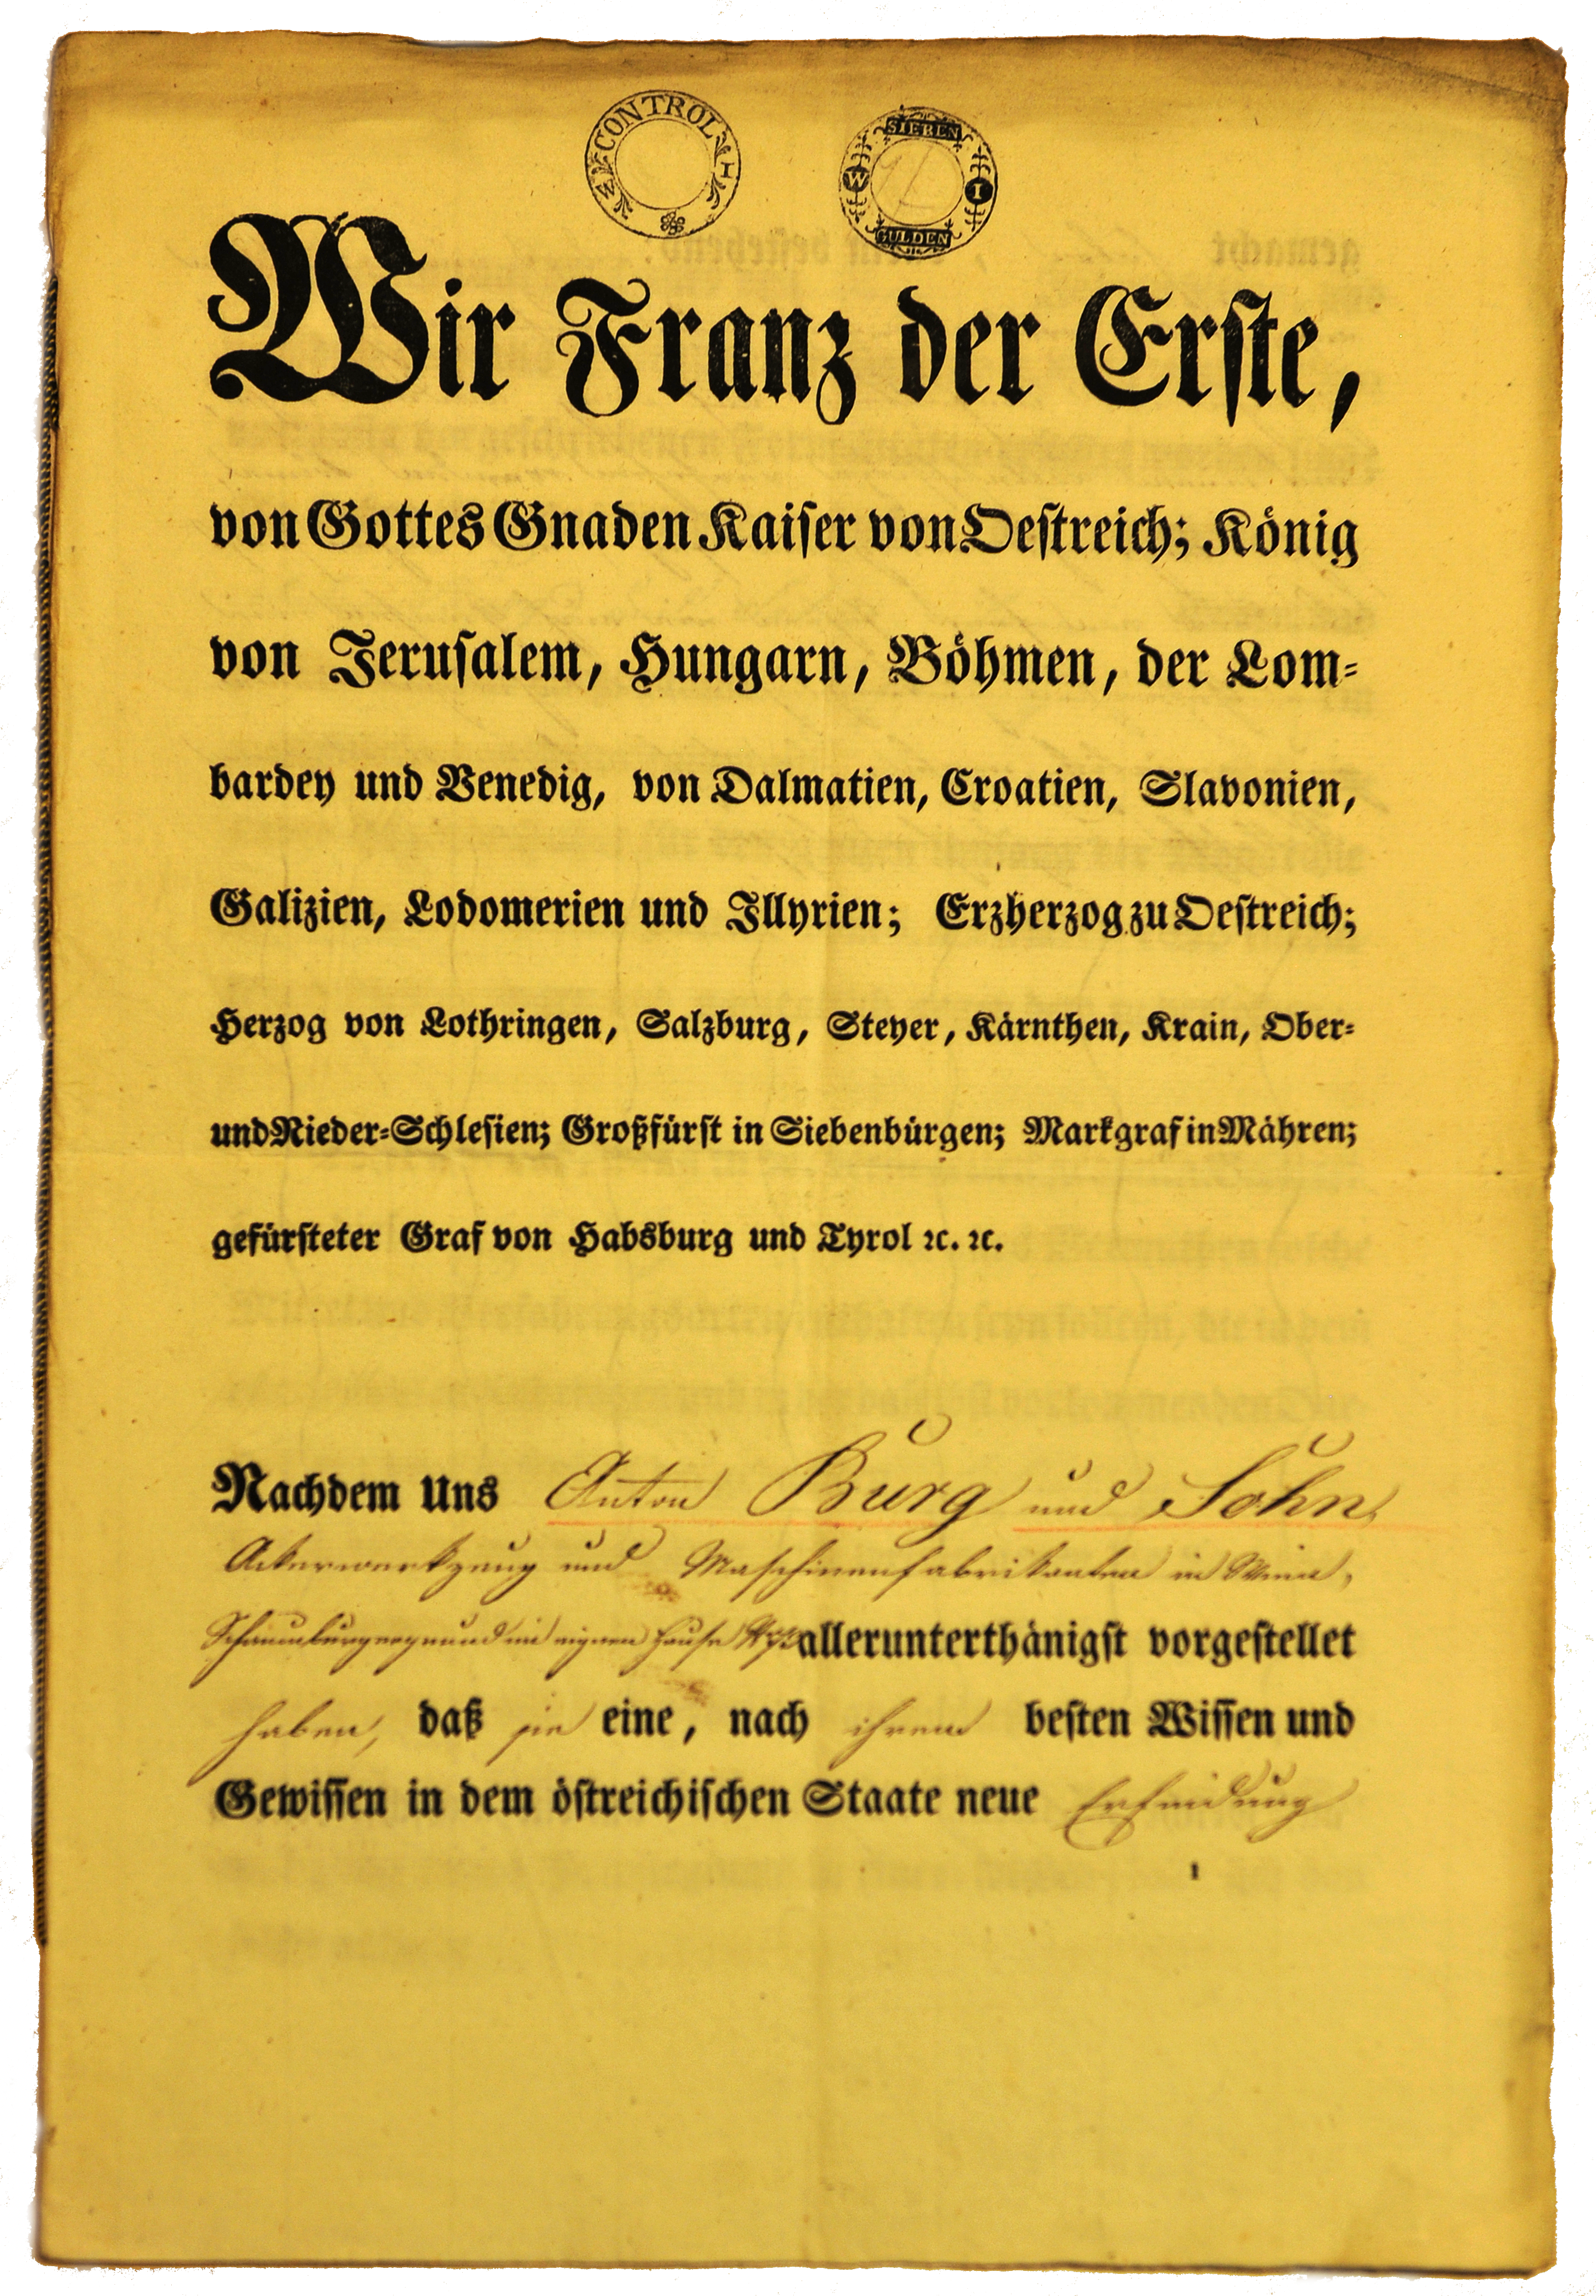 W CONTROL I
SIEBEN
W I
GULDEN
Wir Franz der Erste,
von Gottes Gnaden Kaiser von Oestreich; König
von Jerusalem, Hungarn, Böhmen, der Lom-
bardey und Venedig, von Dalmatien, Croatien, Slavonien,
Galizien, Lodomerien und Illyrien; Erzherzog zu Oestreich;
Herzog von Lothringen, Salzburg, Steyer, Kärnthen, Krain, Ober-
und Nieder-Schlesien; Großfürst in Siebenbürgen; Markgraf in Mähren;
gefürsteter Graf von Habsburg und Tyrol ꝛc. ꝛc.
Nachdem Uns Anton Burg und Sohn,
Ackerwerkzeug und Maschinenfabrikanten in Wien,
Schaumburgergrund im eignen Hause allerunterthänigst vorgestellet
haben, daß sie eine, nach ihrem besten Wissen und
Gewissen in dem östreichischen Staate neue Erfindung
1